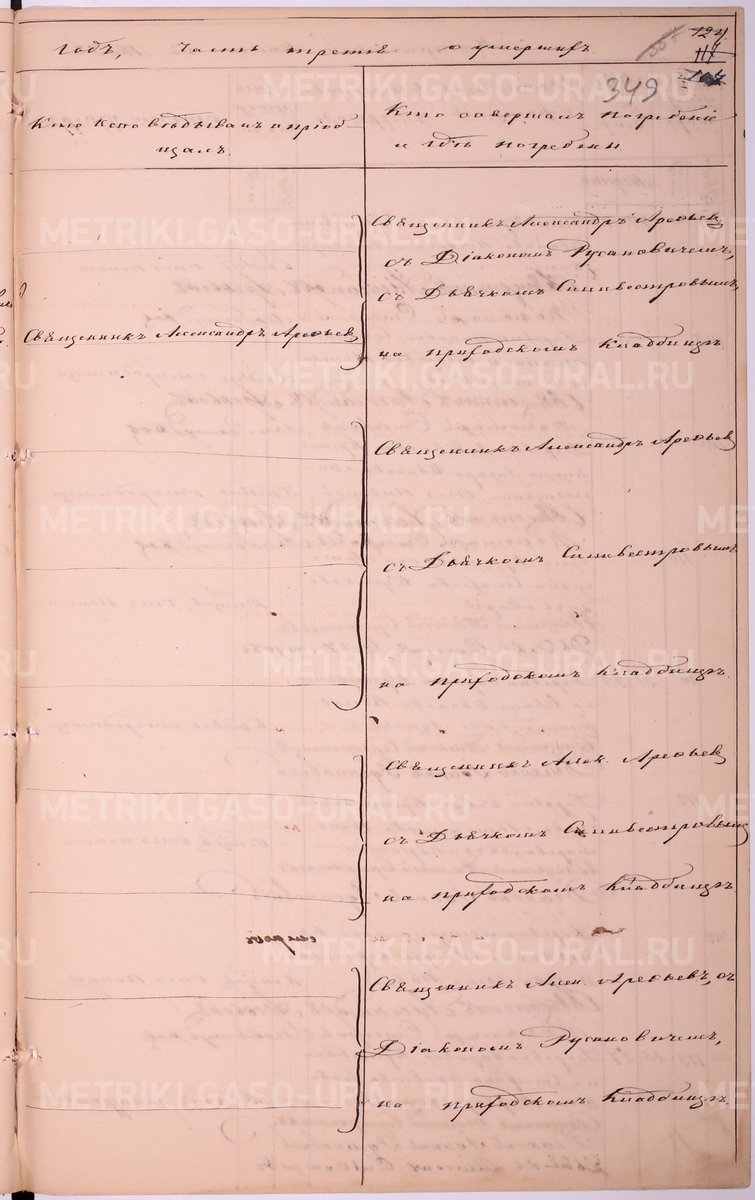 годъ, часть третія о умершихъ.
124
117
104
349
Кто исповѣдывалъ и пріоб-
щалъ.
Кто совершалъ погребеніе
и гдѣ погребены
Священникъ Александръ Арефьев
съ Діакономъ Русановичемъ,
съ Дьячкомъ Сильвестровымъ,
на приходскомъ кладбищѣ.
Священникъ Александръ Арефьев
Священникъ Александръ Арефьев
съ Дьячкомъ Сильвестровымъ
на приходскомъ кладбищѣ.
Священникъ Алек. Арефьев
съ Дьячкомъ Сильвестровымъ
на приходскомъ кладбищѣ
Священникъ Алек. Арефьевъ, съ
Діакономъ Русановичемъ,
на приходскомъ кладбищѣ
METRIKI.GASO-URAL.RU